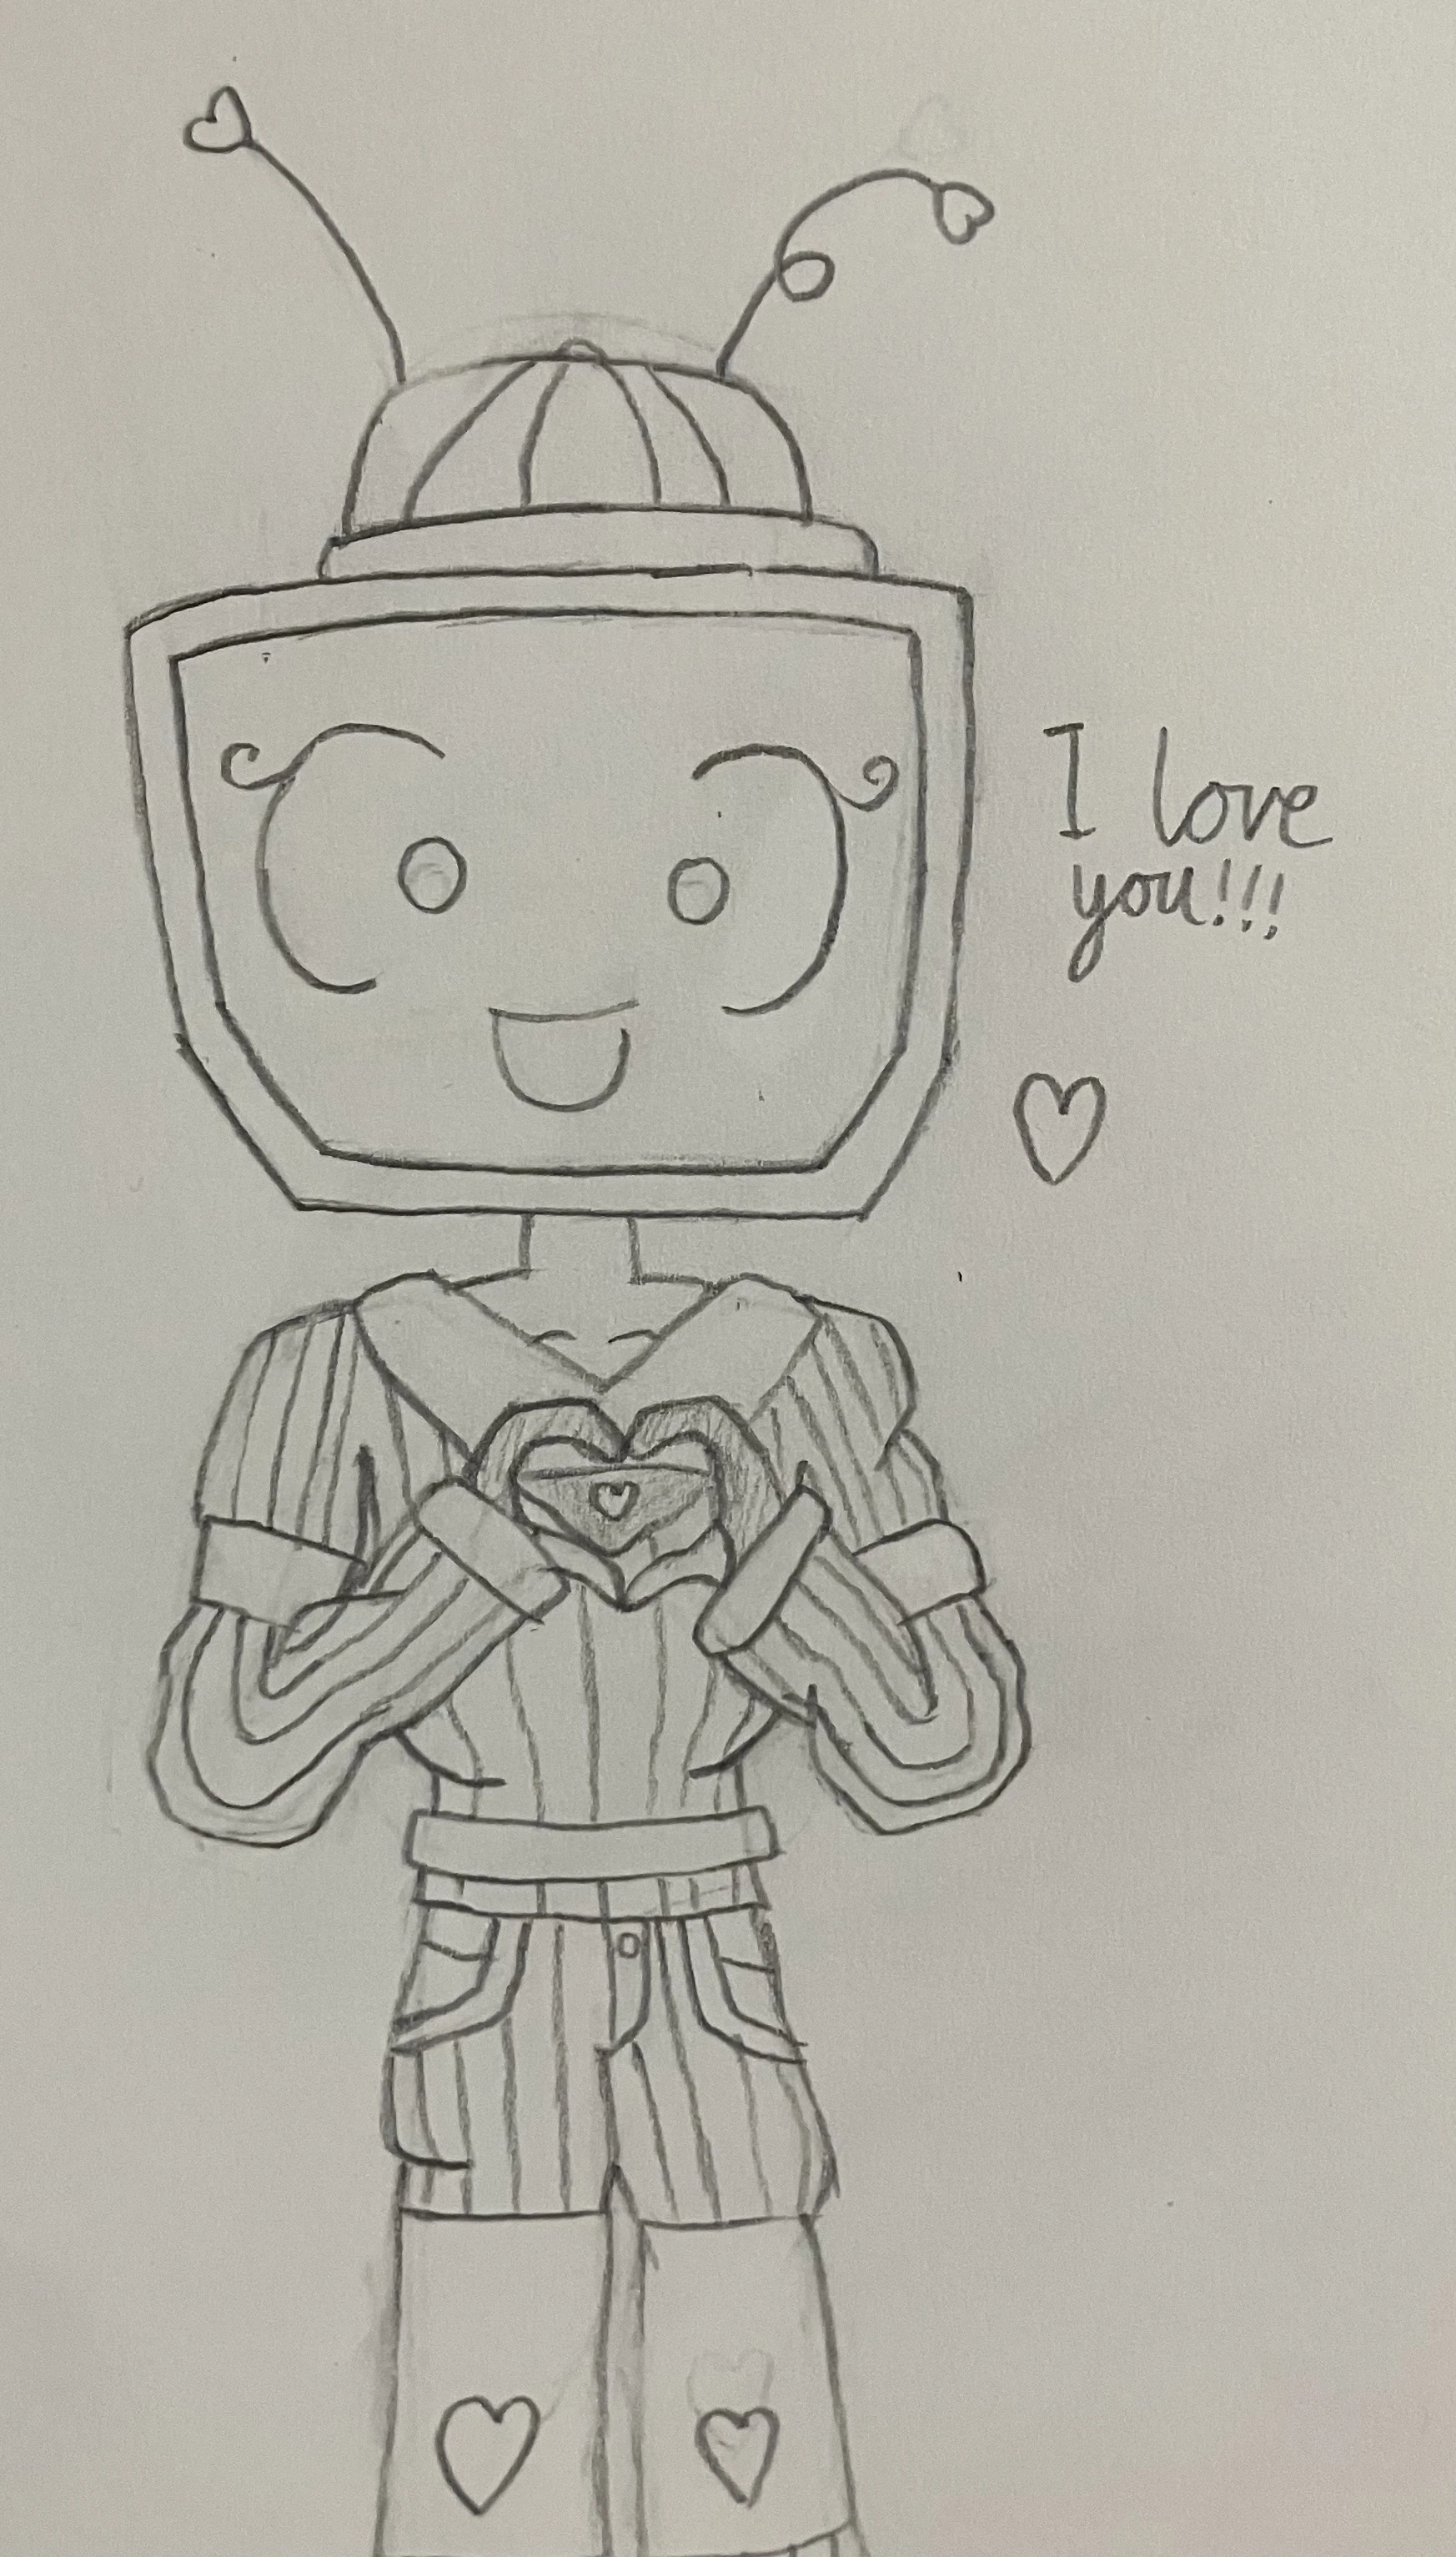 I love
you!!!